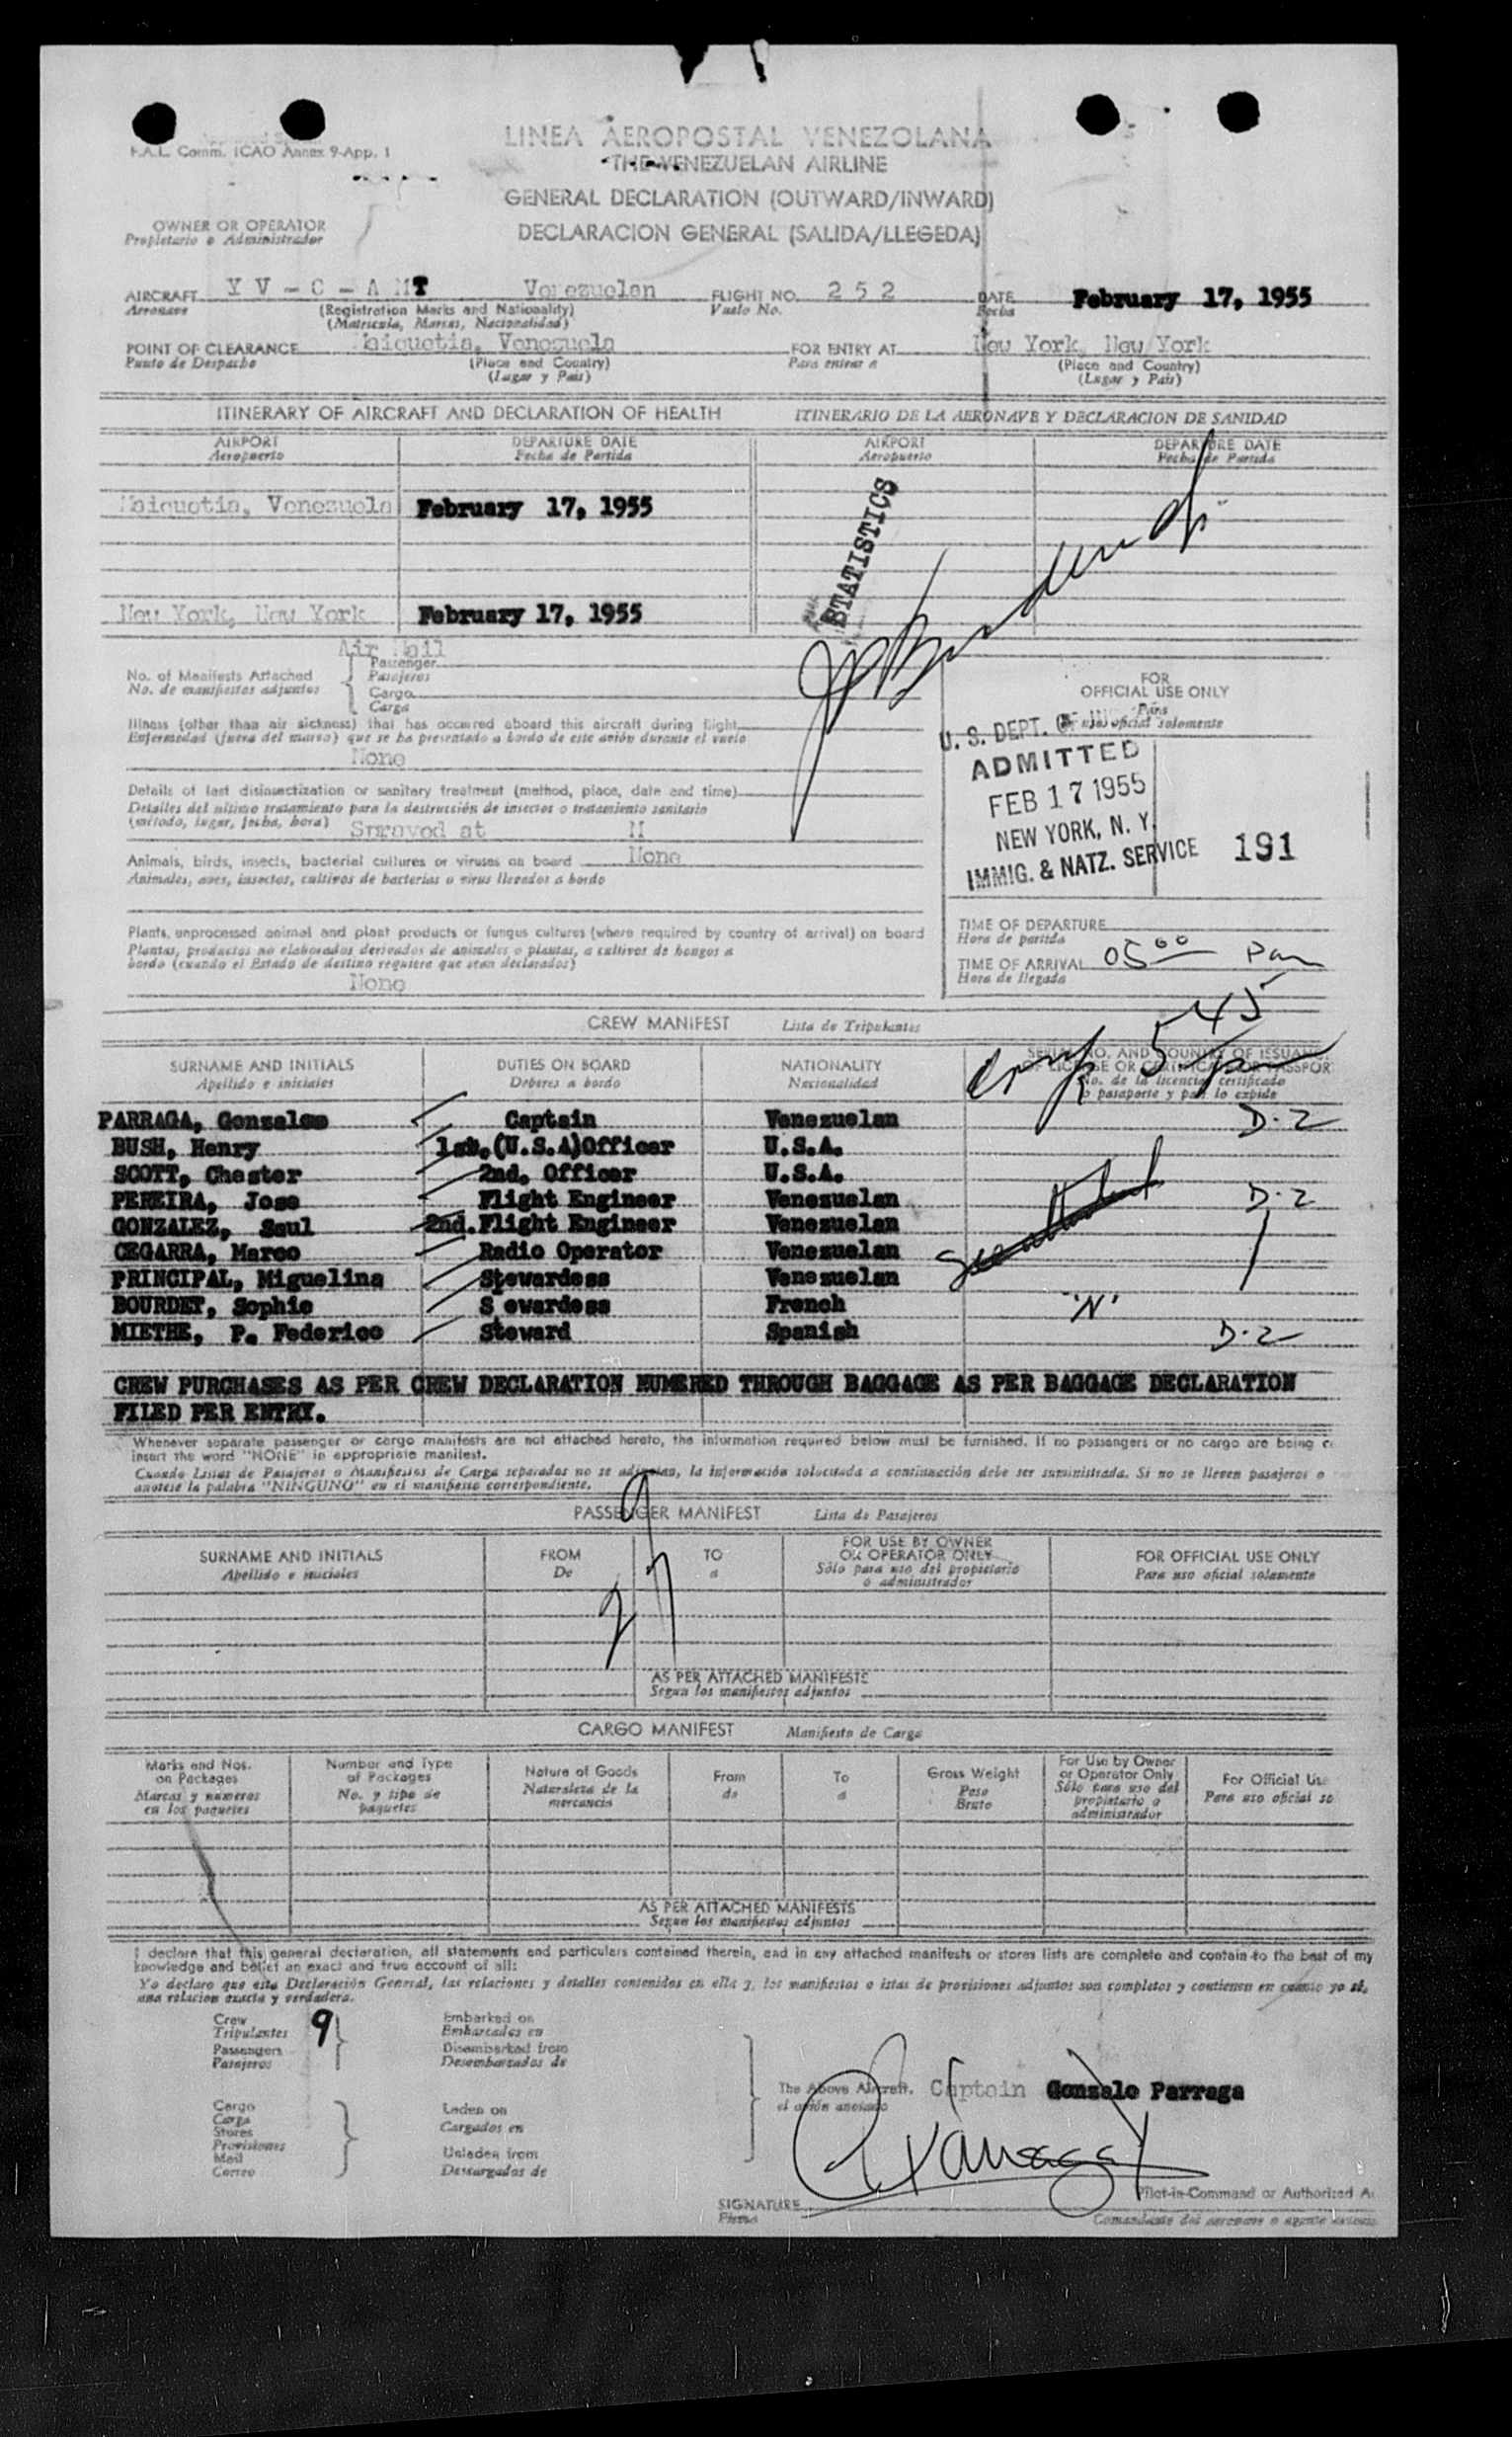 F.A.L. Comm. ICAO Annex 9-App. 1
LINEA AEROPOSTAL VENEZOLANA
THE VENEZUELAN AIRLINE
GENERAL DECLARATION (OUTWARD/INWARD)
DECLARACION GENERAL (SALIDA/LLEGEDA)
OWNER OR OPERATOR
Propietario o Administrador
AIRCRAFT Y V - C - A M T Venezuelan FLIGHT NO. 2 5 2 DATE February 17, 1955
Aeronave (Registration Marks and Nationality) Vuelo No. Fecha
(Matricula, Marcas, Nacionalidad)
POINT OF CLEARANCE Maiquetia, Venezuela FOR ENTRY AT New York, New York
Punto de Despacho (Place and Country) Para entrar a (Place and Country)
(Lugar y Pais) (Lugar y Pais)
ITINERARY OF AIRCRAFT AND DECLARATION OF HEALTH ITINERARIO DE LA AERONAVE Y DECLARACION DE SANIDAD
AIRPORT DEPARTURE DATE AIRPORT DEPARTURE DATE
Aeropuerto Fecha de Partida Aeropuerto Fecha de Partida
Maiquetia, Venezuela February 17, 1955
STATISTICS
New York, New York February 17, 1955
Air Mail
No. of Manifests Attached Passenger
No. de manifiestos adjuntos Pasajeros
Cargo
Carga
FOR
OFFICIAL USE ONLY
Para
uso oficial solamente
Illness (other than air sickness) that has occurred aboard this aircraft during flight
Enfermedad (fuera del mareo) que se ha presentado a bordo de este avión durante el vuelo
None
U. S. DEPT. OF
ADMITTED
FEB 17 1955
NEW YORK, N. Y.
IMMIG. & NATZ. SERVICE 191
Details of last disinsectization or sanitary treatment (method, place, date and time)
Detalles del ultimo tratamiento para la destrucción de insectos o tratamiento sanitario
(método, lugar, fecha, hora) Sprayed at M
Animals, birds, insects, bacterial cultures or viruses on board None
Animales, aves, insectos, cultivos de bacterias o virus llevados a bordo
Plants, unprocessed animal and plant products or fungus cultures (where required by country of arrival) on board
Plantas, productos no elaborados derivados de animales o plantas, o cultivos de hongos a
bordo (cuando el Estado de destino requiera que sean declarados)
None
TIME OF DEPARTURE
Hora de partida
TIME OF ARRIVAL 05 00 Pm
Hora de llegada
CREW MANIFEST Lista de Tripulantes
5 45
SURNAME AND INITIALS DUTIES ON BOARD NATIONALITY SERIAL NO. AND COUNTRY OF ISSUANCE
OF LICENSE OR CERTIFICATE OR PASSPOR
Apellido e iniciales Deberes a bordo Nacionalidad No. de la licencia, certificado
o pasaporte y pais lo expide
PARRAGA, Gonzalom Captain Venezuelan D-2
BUSH, Henry 1st.(U.S.A)Officer U.S.A.
SCOTT, Chester 2nd. Officer U.S.A.
PEREIRA, Jose Flight Engineer Venezuelan D-2
GONZALEZ, Saul 2nd.Flight Engineer Venezuelan
CEGARRA, Marco Radio Operator Venezuelan
PRINCIPAL, Miguelina Stewardess Venezuelan
BOURDET, Sophie S ewardess French "N"
MIETHE, P. Federico Steward Spanish D-2
CREW PURCHASES AS PER CREW DECLARATION NUMERED THROUGH BAGGAGE AS PER BAGGAGE DECLARATION
FILED PER ENTRY.
Whenever separate passenger or cargo manifests are not attached hereto, the information required below must be furnished. If no passengers or no cargo are being c
insert the word "NONE" in appropriate manifest.
Cuando Listas de Pasajeros o Manifiestos de Carga separados no se adjuntan, la información solocitada a continuación debe ser suministrada. Si no se lleven pasajeros o
anotese la palabra "NINGUNO" en el manifiesto correspondiente.
PASSENGER MANIFEST Lista de Pasajeros
9
27
SURNAME AND INITIALS FROM TO FOR USE BY OWNER
OR OPERATOR ONLY FOR OFFICIAL USE ONLY
Apellido e iniciales De a Sólo para uso del propietario
o administrador Para uso oficial solamente
AS PER ATTACHED MANIFESTS
Segun los manifiestos adjuntos
CARGO MANIFEST Manifiesto de Carga
Marks and Nos.
on Packages
Marcas y números
en los paquetes
Number and Type
of Packages
No. y tipo de
paquetes
Nature of Goods
Naturaleza de la
mercancia
From
de
To
a
Gross Weight
Peso
Bruto
For Use by Owner
or Operator Only
Sólo para uso del
propietario o
administrador
For Official Us
Para uso oficial so
AS PER ATTACHED MANIFESTS
Segun los manifiestos adjuntos
I declare that this general declaration, all statements and particulars contained therein, and in any attached manifests or stores lists are complete and contain to the best of my
knowledge and belief an exact and true account of all:
Yo declaro que esta Declaración General, las relaciones y detalles contenidos en ella y, los manifiestos o istas de provisiones adjuntos son completos y contienen en cuanto yo sé,
una relacion exacta y verdadera.
Crew 9 Embarked on
Tripulantes Embarcados en
Passengers Disembarked from
Pasajeros Desembarcados de
The Above Aircraft. Captain Gonzalo Parraga
el avión anotado
Cargo Laden on
Carga Cargados en
Stores
Provisiones
Mail Unladen from
Correo Descargados de
G Parraga
Pilot-in-Command or Authorized A
SIGNATURE
Firma Comandante del aeronave o agente